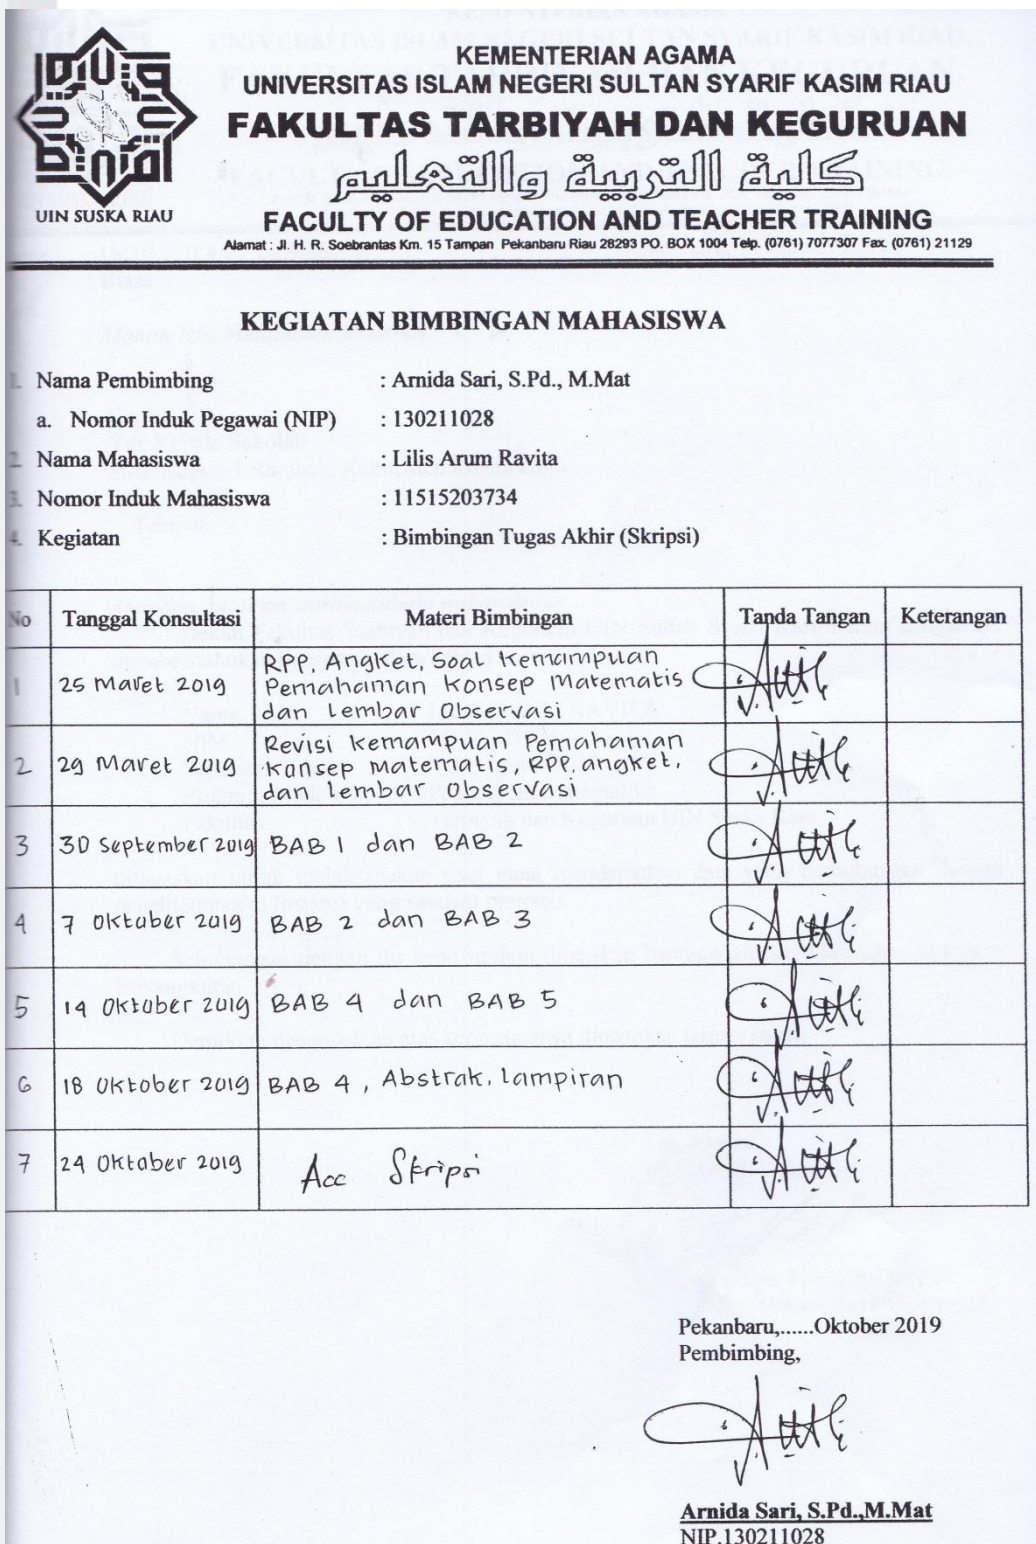 KEMENTERIAN AGAMA
UNIVERSITAS ISLAM NEGERI SULTAN SYARIF KASIM RIAU
FAKULTAS TARBIYAH DAN KEGURUAN
كلية التربية والتعليم
FACULTY OF EDUCATION AND TEACHER TRAINING
UIN SUSKA RIAU
Alamat : Jl. H. R. Soebrantas Km. 15 Tampan Pekanbaru Riau 28293 PO. BOX 1004 Telp. (0761) 7077307 Fax. (0761) 21129
KEGIATAN BIMBINGAN MAHASISWA
1. Nama Pembimbing : Arnida Sari, S.Pd., M.Mat
a. Nomor Induk Pegawai (NIP) : 130211028
2. Nama Mahasiswa : Lilis Arum Ravita
3. Nomor Induk Mahasiswa : 11515203734
4. Kegiatan : Bimbingan Tugas Akhir (Skripsi)
No Tanggal Konsultasi Materi Bimbingan Tanda Tangan Keterangan
1 25 Maret 2019 RPP, Angket, Soal Kemampuan
Pemahaman Konsep Matematis
dan Lembar Observasi
2 29 Maret 2019 Revisi Kemampuan Pemahaman
Konsep Matematis, RPP, angket,
dan lembar Observasi
3 30 September 2019 BAB 1 dan BAB 2
4 7 Oktober 2019 BAB 2 dan BAB 3
5 14 Oktober 2019 BAB 4 dan BAB 5
6 18 Oktober 2019 BAB 4, Abstrak, lampiran
7 24 Oktober 2019 Acc Skripsi
Pekanbaru,......Oktober 2019
Pembimbing,
Arnida Sari, S.Pd.,M.Mat
NIP.130211028